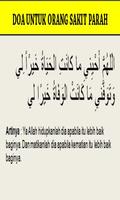 DOA UNTUK ORANG SAKIT PARAH
اللَّهُمَّ أَحْيِنِي مَا كَانَتِ الْحَيَاةُ خَيْرًا لِي
وَتَوَفَّنِي مَا كَانَتِ الْوَفَاةُ خَيْرًا لِي
Artinya : Ya Allah hidupkanlah dia apabila itu lebih baik
baginya. Dan matikanlah dia apabila kematian itu lebih baik
baginya.